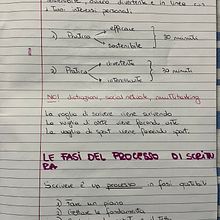 sostenibile, ovvero divertente e in linea con
i tuoi interessi personali.
1) Pratica efficace sostenibile 30 minuti
2) Pratica divertente interessante 30 minuti
NO! distrazioni, social network, multitasking
La voglia di scrivere viene scrivendo
La voglia di
La voglia di sport viene facendo sport
LE FASI DEL PROCESSO DI SCRITTU
RA
Scrivere è un processo in fasi
1) Fare un piano
2) Gettare le fondamenta